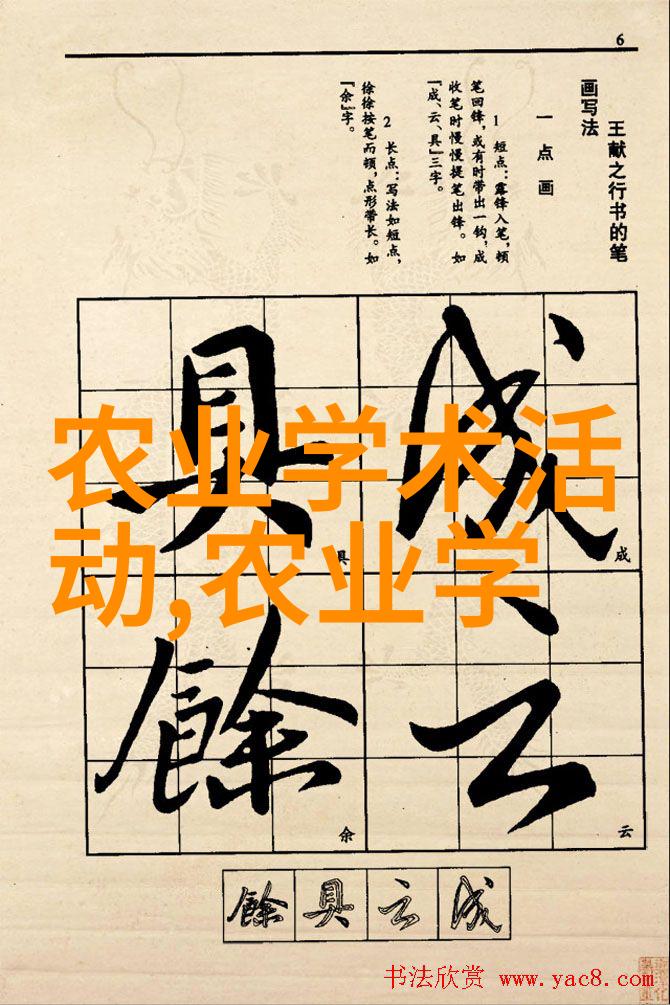 6
王献之行书的笔
画写法
一 点 画
1 短点：露锋入笔，顿
笔回锋，或有时带出一钩，成
收笔时慢慢提笔出锋。如
「成、云、具」三字。
2 长点：写法如短点，
徐徐按笔而顿，点形带长。如
「余」字。
成
成
云
云
具
具
餘
余
农业学术活
动,农业学
餘 具 云 成
书法欣赏 www.yac8.com